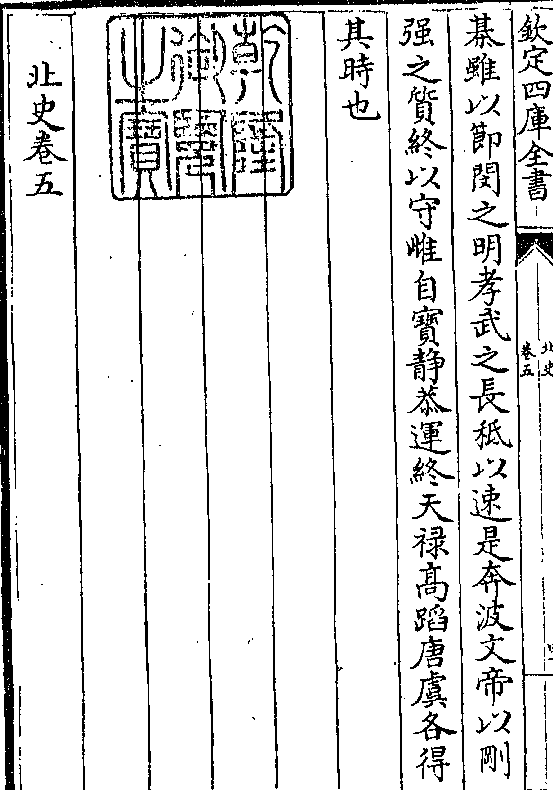 欽定四庫全書
北史
卷五
棊雖以節閔之明孝武之長秪以速是奔波文帝以剛
强之質終以守雌自寶静恭運終天禄髙蹈唐虞各得
其時也
乾隆
御覽
之寶
北史卷五